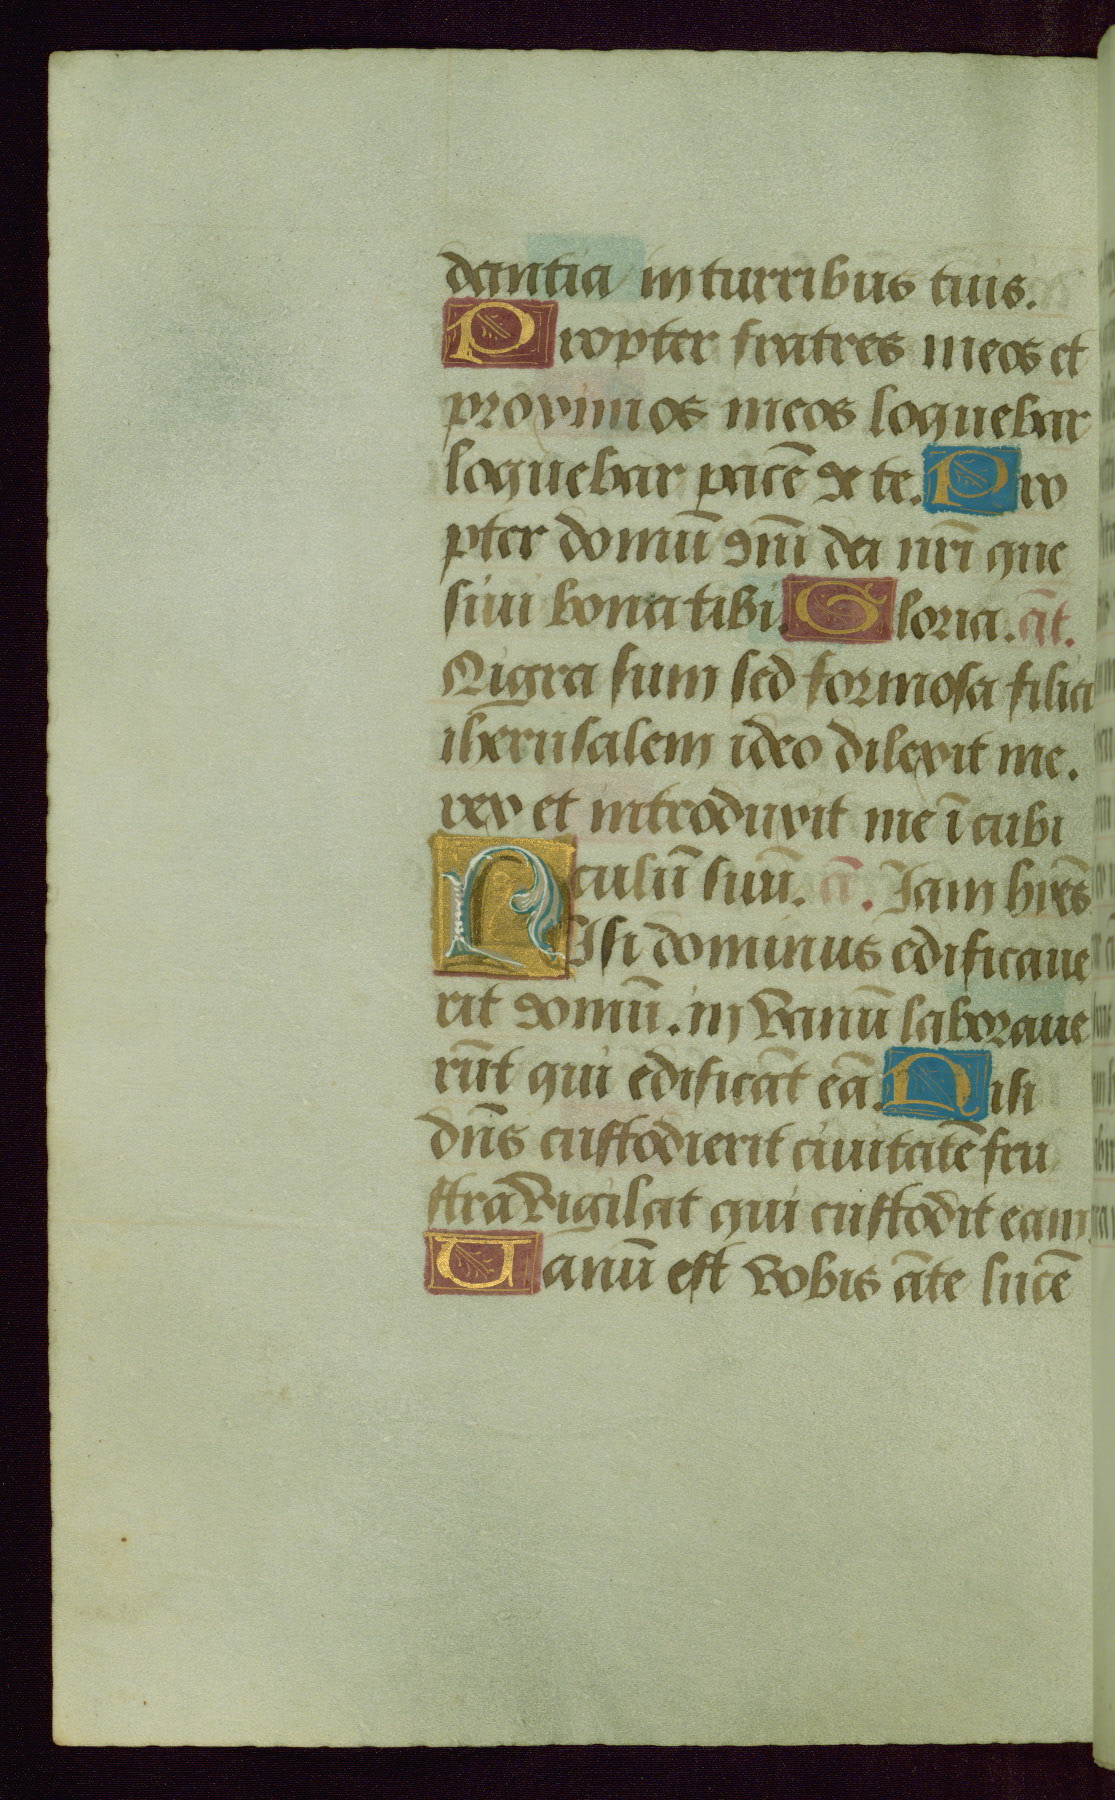 dantia in turribus tuis.
Propter fratres meos et
proximos meos loquebar
loquebar pacē de te. Pro
pter domū dn̄i dei nr̄i que
siui bona tibi. Gloria. āt.
Nigra sum sed formosa filia
iherusalem ideo dilexit me.
rex et introduxit me ī cubi
culū suū. ā. Iam hyēs
NIsi dominus edificaue
rit domū. in vanū laboraue
rūt qui edificāt eā. Nisi
dn̄s custodierit ciuitatē fru
stra vigilat qui custodit eam.
Uanū est vobis āte lucē